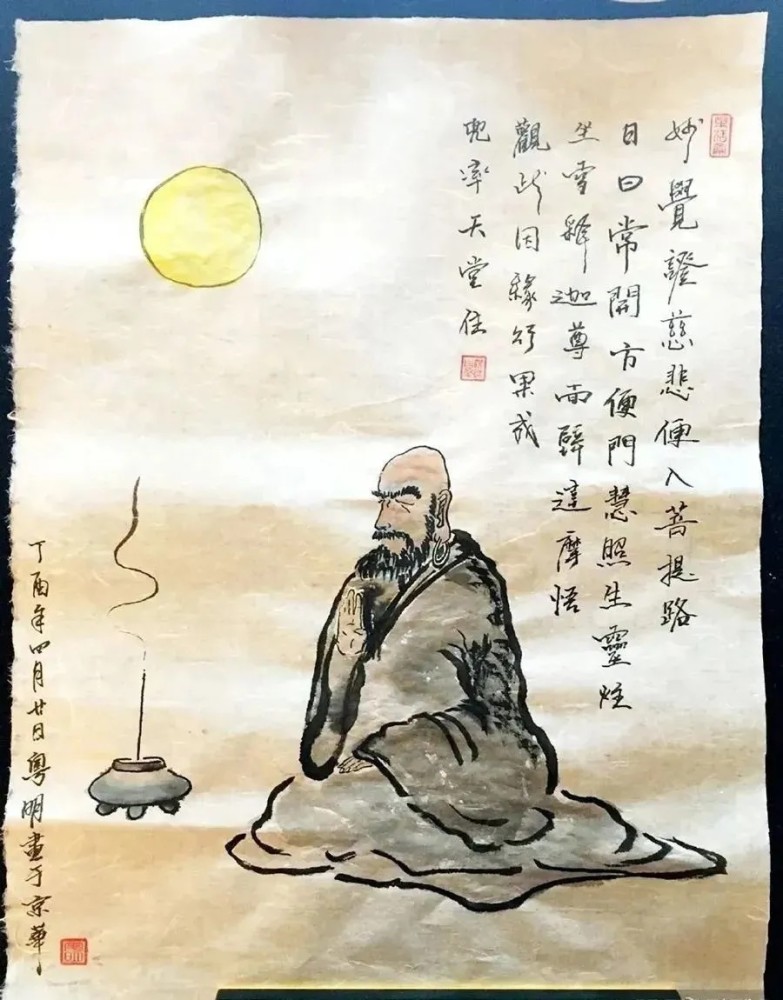 妙覺證慈悲便入菩提路
日日常開方便門慧照生靈炷
坐雪釋迦尊面壁達摩悟
觀此因緣行果成
兜率天堂住
丁酉年四月廿日粵明畫于京華